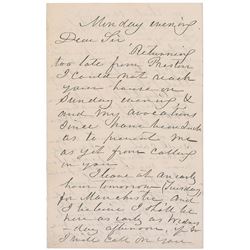 Monday evening
Dear Sir
Returning
too late from Preston
I could not reach
your house on
Sunday evening &
and my avocations
since have been such
as to prevent me
as yet from calling
on you
I leave at an early
hour tomorrow (Tuesday)
for Manchester and
I believe I shall be
here as early as Wednes
-day afternoon, if so
I will call on you